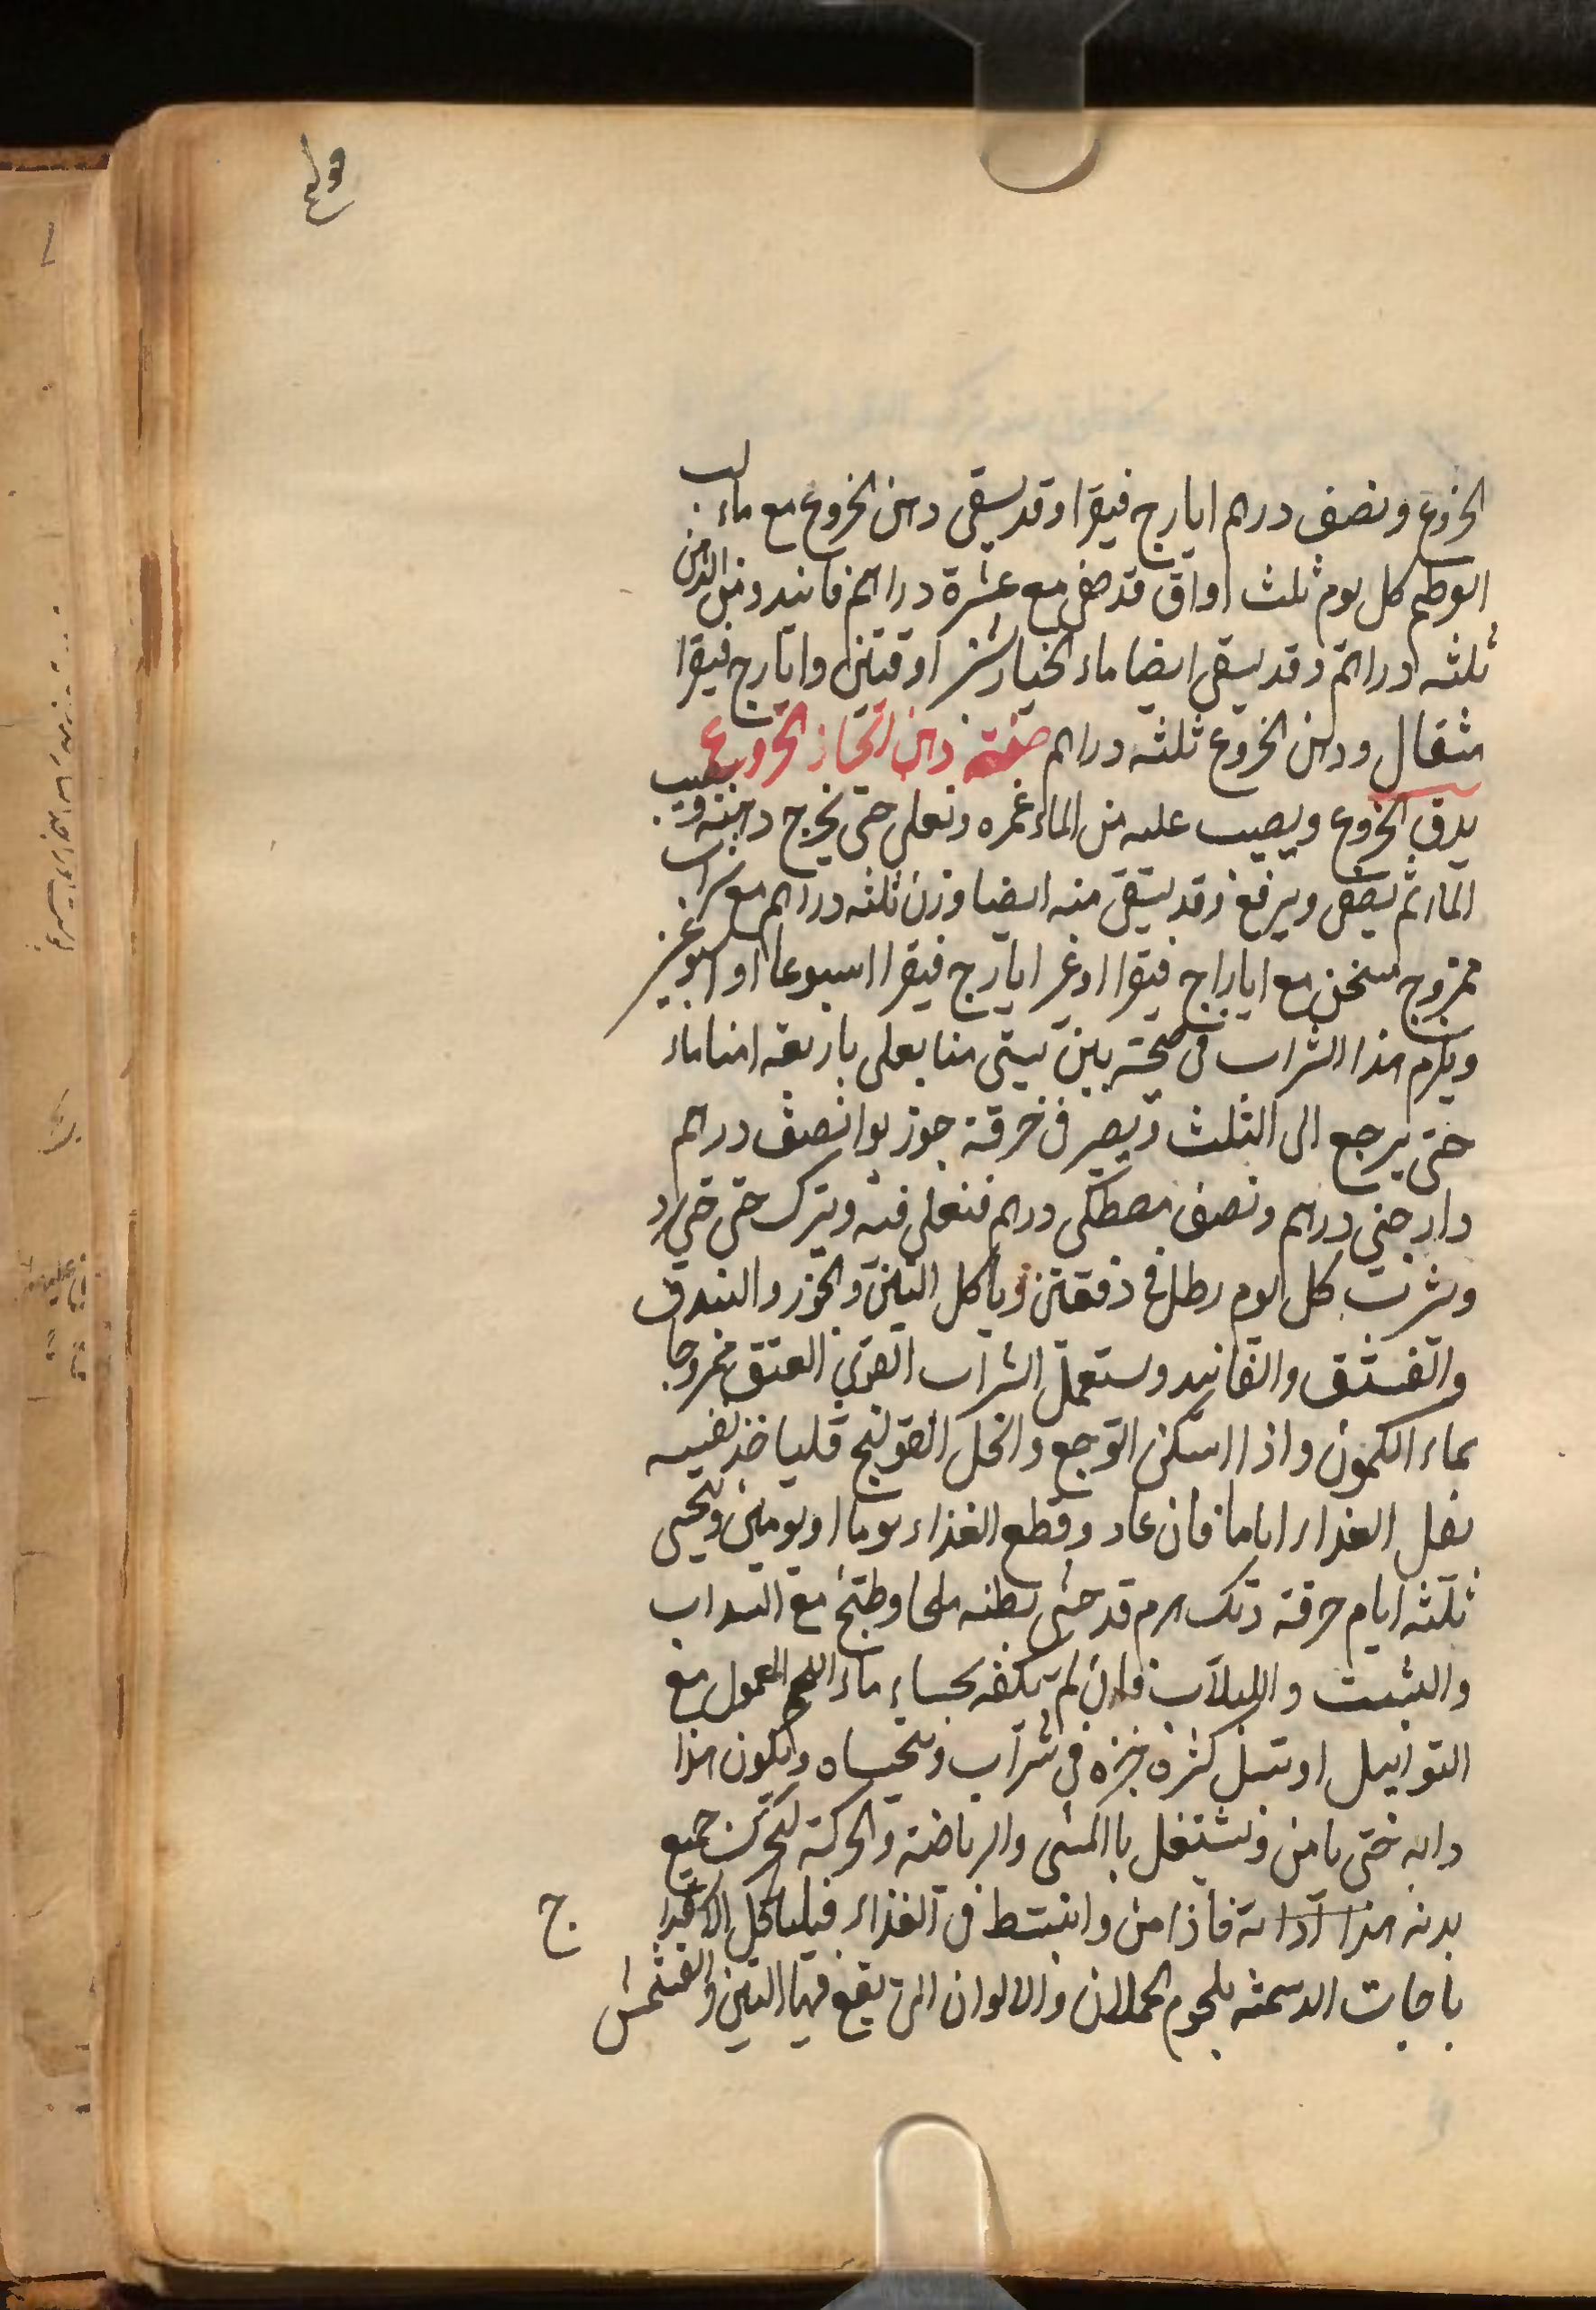 الخروع ونصف درهم ايارج فيقرا وقد يسقى دهن الخروع مع ماء لب
ابوطم كل يوم ثلث اواق قد صفى مع عشرة دراهم فانيد ومن الدهن
ثلثه دراهم وقد يسقى ايضا ماء الخيارشنبر اوقتين وايارج فيقرا
مثقال ودهن الخروع ثلثه دراهم صفة دهن الخروع
يدق الخروع ويصب عليه من الماء غمره ويغلى حتى يخرج دهنه ويصب
الماء ثم يصفى ويرفع وقد يسقى منه ايضا وزن ثلثه دراهم مع شراب
ممزوج مسخن مع اياراج فيقرا او غير ايارج فيقرا اسبوعا او اسبوعين
ويلزم هذا الشراب فى صحته بين تيبتى منا يغلى باربعه امنا ماء
حتى يرجع الى الثلث ويصير فى خرقة جوز بوا نصف درهم
دار جينى درهم ونصف مصطكى درهم فتغلى فيه ويترك حتى
ويشرب كل يوم رطل فى دفعتين وياكل التين والجوز والبندق
والفستق والفانيد ويستعمل الشراب القوى العتق ممزوجا
بماء الكمون واذا اسكن الوجع وانحل القولنج فلياخذ نفسه
بقل الغذاء اياما فان عاد وقطع الغذاء يوما او يومين ويتحسى
ثلثه ايام مرقة ديك هرم قد حشى بطنه ملحا وطبخ مع السداب
والشبت واللبلاب فان لم يكفه بحساء ماء اللحم المعمول مع
التوابيل او تبل كثره خبزه فى شراب ويتحساه ويكون هذا
دابه حتى يامن ويشتغل باالمشى والرياضة والحركة لتحرك جميع
بدنه هذا ادابة فاذا من وانبسط فى الغذاء فلياكل الاسفيدا
باجات الدسمثه بلحوم الحملان والالوان التى يقع فيها التين والمشمش
ج